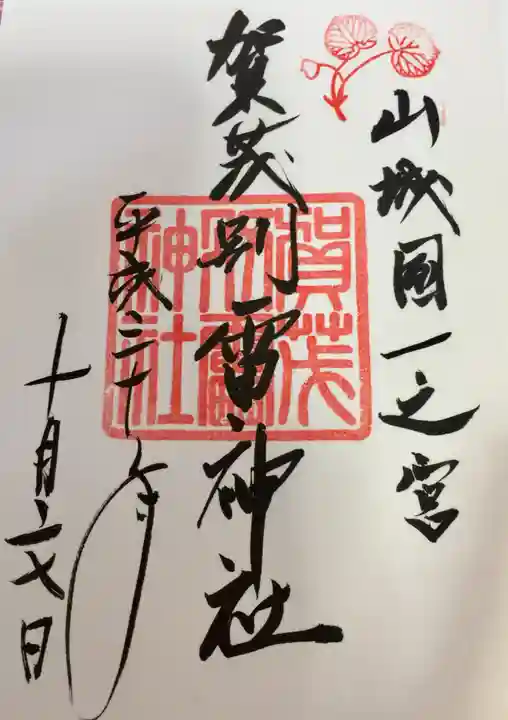 山城国一之宮
賀茂別雷神社
賀茂
別雷
神社
平成二十年
十月二七日